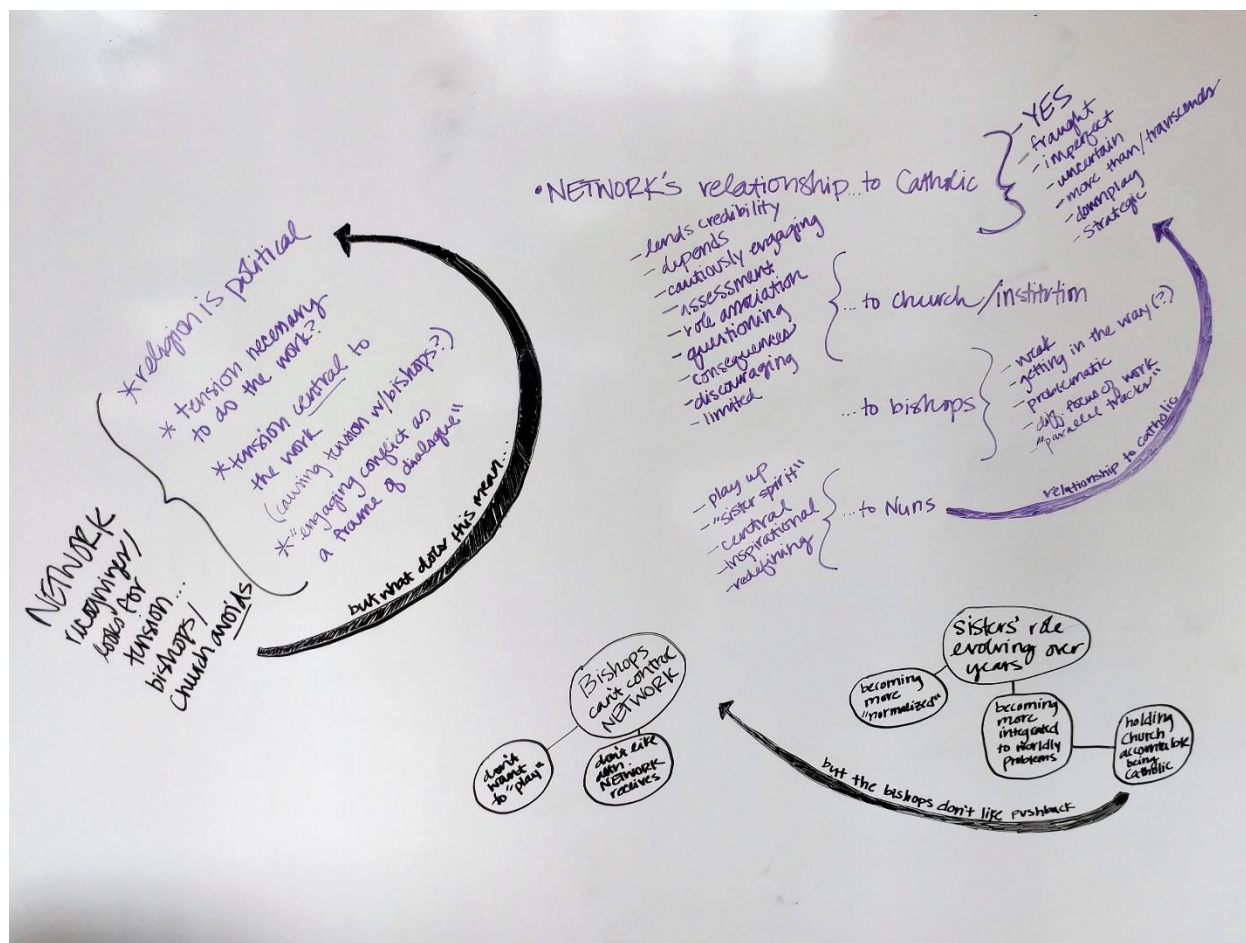 *religion is political
* tension necessary
to do the work?
*tension central to
the work
(causing tension w/bishops?)
*"engaging conflict as
a frame of dialogue"
NETWORK
recognizes/
looks for
tension...
bishops/
church avoids
but what does this mean...
•NETWORK's relationship...to Catholic
-YES
-fraught
-imperfect
-uncertain
-more than/transcends
-downplay
-strategic
-lends credibility
-depends
-cautiously engaging
-assessment
-role association
-questioning
-consequences
-discouraging
-limited
...to church/institution
...to bishops
-weak
-getting in the way(?)
-problematic
-diff. focus of work
-"parallel tracks"
-play up
-"sister spirit"
-central
-inspirational
-redefining
...to Nuns
relationship to catholic
Bishops
can't control
NETWORK
don't
want
to "play"
don't like
attn.
NETWORK
receives
sisters' role
evolving over
years
becoming
more
"normalized"
becoming
more
integrated
to worldly
problems
holding
church
accountable
being
catholic
but the bishops don't like pushback